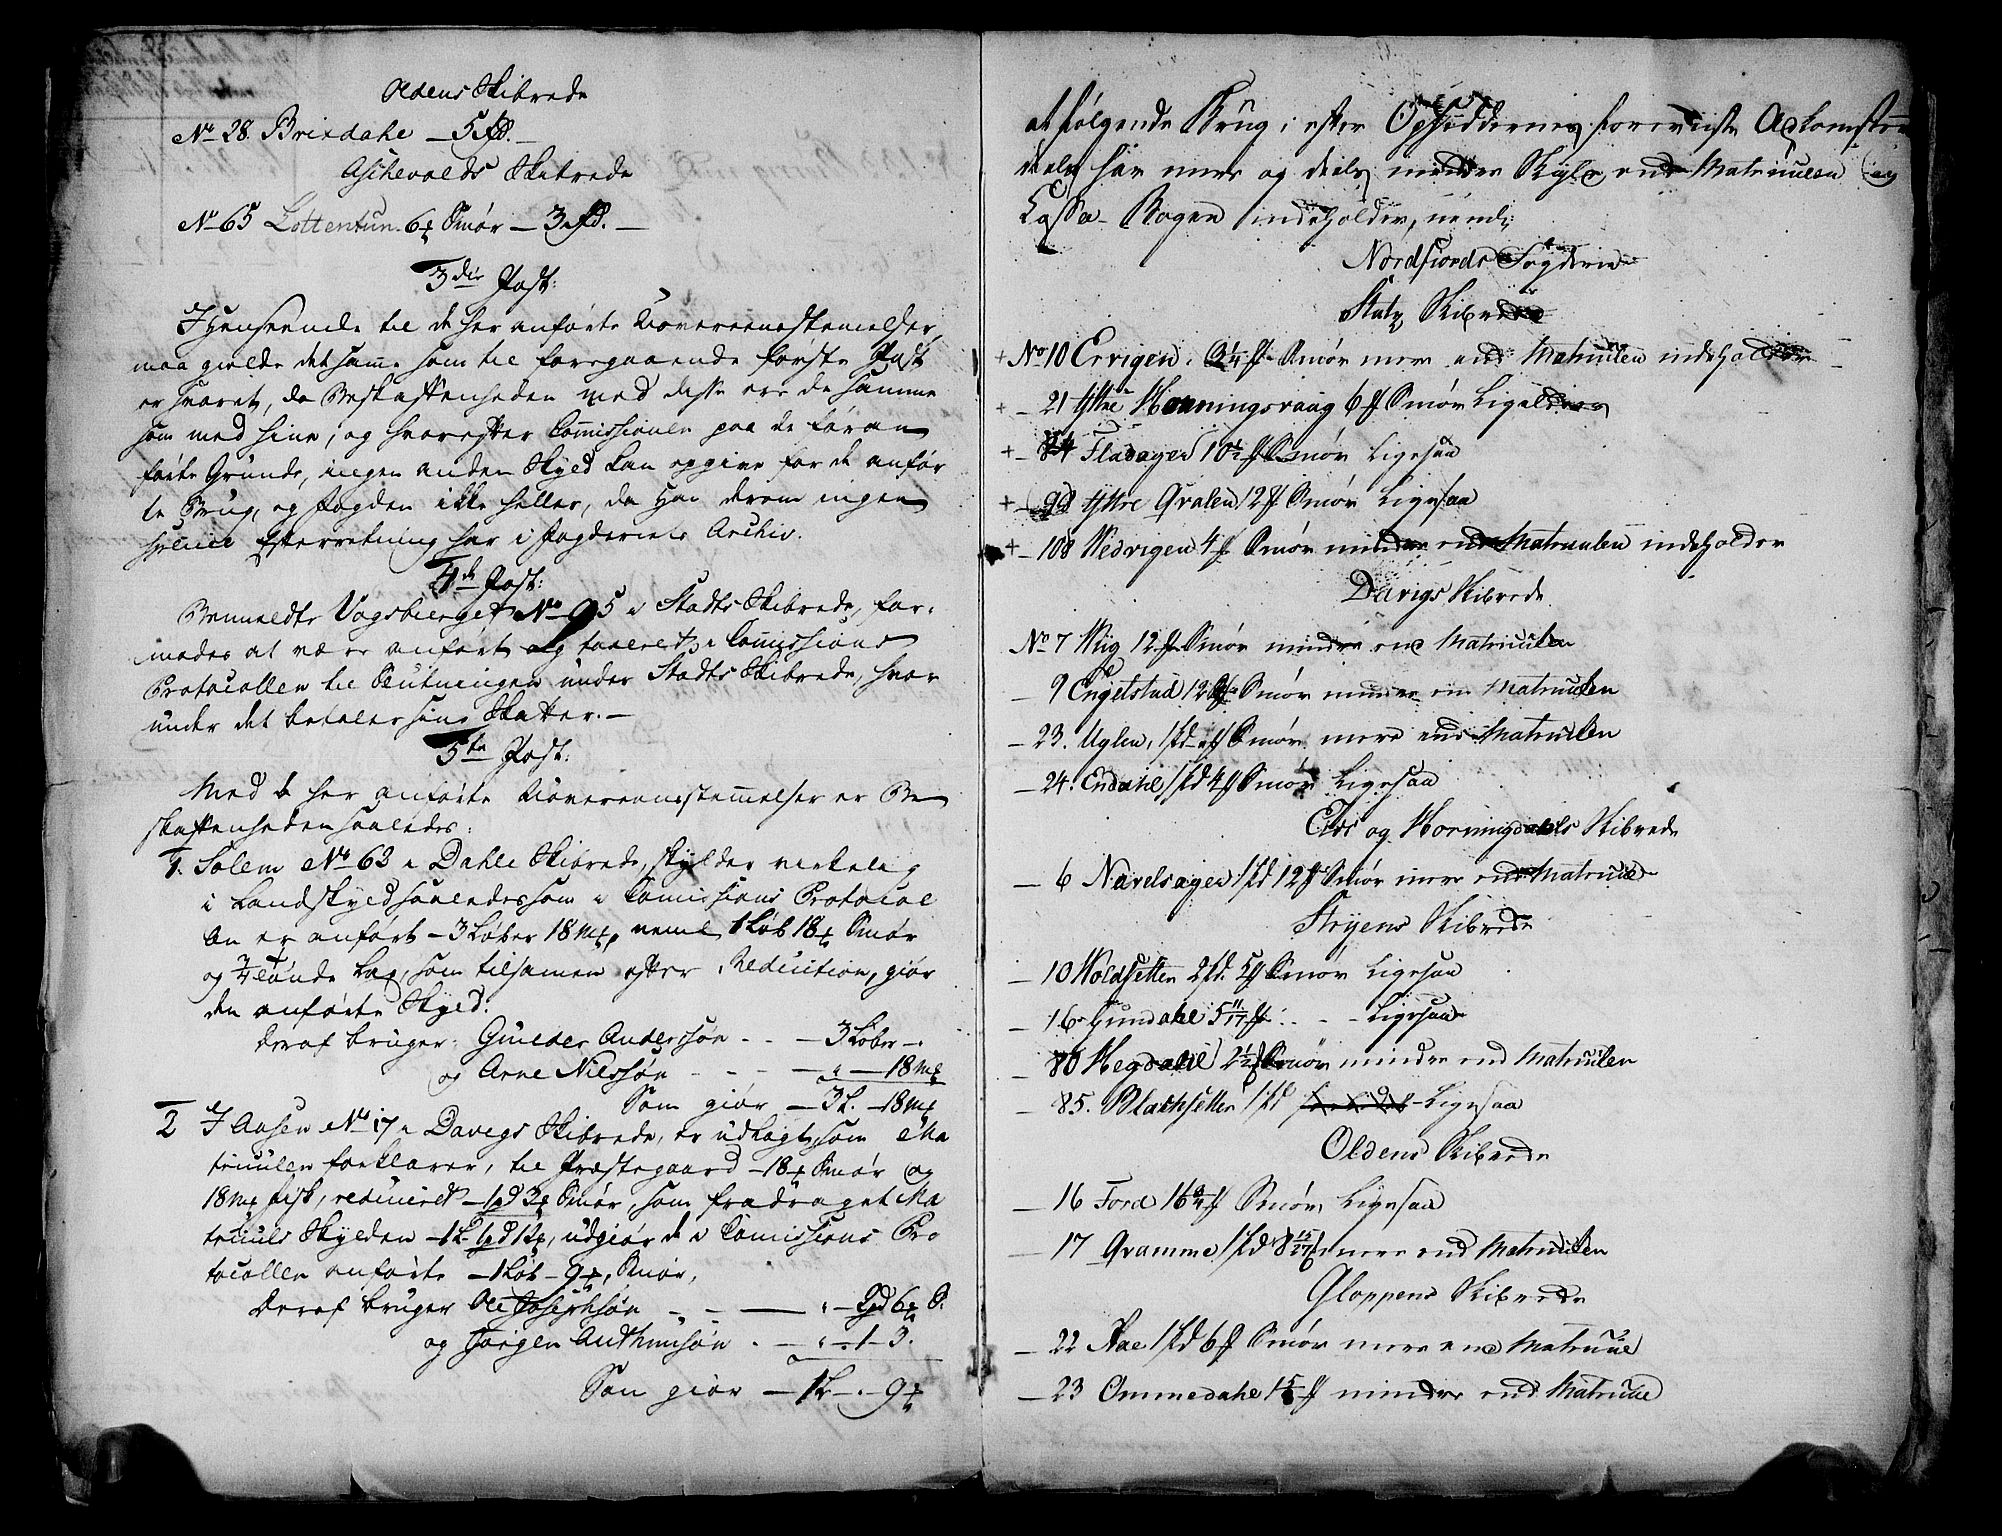 Oldens Skibrede
No 28. Brixdahl — 5 ℔. —
Aschevolds Skibrede
No 65 Lottentun. 6 Smør — 3 ℔. —
3die Post:
I Henseende til de her anførte Uovereensstemmelser,
maa gielde det samme som til foregaaende første Post
er svaret, da Beskaffenheden med disse ere de samme
som med hine, og hvorefter Comissionen paa de foran
førte Grunde, ingen anden Skyld kan opgive for de anfør
te Brug, og Fogden ikke heller, da han derom ingen
Efterretning har i Fogderiets Archiv.
4de Post:
Bemeldte Vogsberget No 95 i Stadts Skibrede, for:
modes at være anført og taxeret i Comissions
Protocollen til Slutningen under Stadts Skibrede, hvor
under det betaler sine Skatter. —
5te Post:
Med de her anførte Uovereensstemmelser er Be
skaffenheden saaledes:
1. Solem No 63 i Dahle Skibrede, skylder virkelig
i Landskyld saaledes som i Comissions Protocol
len er anført — 3 Løber 18 mk, neml 1 Løb 18 Smør
og Lax, som tilsamen efter Reduction, giør
den anførte Skyld.
deraf bruger: Gulder Anderssøn - - — 3 Løber —
og Arne Nilssøn - - - — " — 18 mk
Som giør — 3 L. — 18 mk
2 I Aasen No 17 i Davigs Skibrede, er udlagt, som Ma
triculen forklarer, til Præstegaard — 18 Smør og
18 mk fisk, reduceret — 1 pd 3 Smør, som fradraget Ma
triculs Skylden — 1 L. 1 pd 12, udgiør de i Comissions Pro
tocollen anførte — 1 Løb — 9, Smør,
Deraf bruger Ole Josephsøn - - — " — 2 pd 6 S.
og Jørgen Anthunsøn - — " — 1 — 3.
Som giør — 1 L — " — 9
at følgende Brug i efter Opsiddernes foreviiste Adkomster
deels har mere og deels mindre Skyld end Matriculen og
Cassa-Bogen indeholder, neml:
Nordfiords Fogderie
Statz Skibrede
+ No 10 Ervigen, 3¼ Smør mere end Matriculen indeholder
+ — 21 Yttre Honningsvaag 6 Smør Ligeledes
+ — 84 Fladager 10½ Smør Ligesaa
+ — Yttre Qvalen 12 Smør Ligesaa
+ — 108 Nedvigen 4 Smør mindre end Matriculen indeholder
Davigs Skibrede
No 7 Wiig 12 Smør mindre end Matriculen
— 9 Engelstad 12 Smør mindre end Matriculen
— 23. Uglen, 1 pd Smør mere end Matriculen
— 24. Endahl 1 pd 4 Smør Ligesaa
Eids og Horningdahls Skibrede
— 6 Navelsager 1 pd 12 Smør mere end Matricul
Stryens Skibrede
— 10 Woldsetter 2 pd. 5 Smør Ligesaa
— 16 Gundahl 5 11/17 . - - Ligesaa
— 80 Hegdahl 2½ Smør mindre end Matriculen
— 85. Blakhsetter 1 pd Ligesaa
Oldens Skibrede
— 16 Ford 16¾ Smør Ligesaa
— 17 Qvamme 1 pd 8 15/27 mere end Matriculen
Gloppens Skibrede
— 22 Aae 1 pd 6 Smør mere end Matricul
— 23 Ommedahl mindre end Matricul